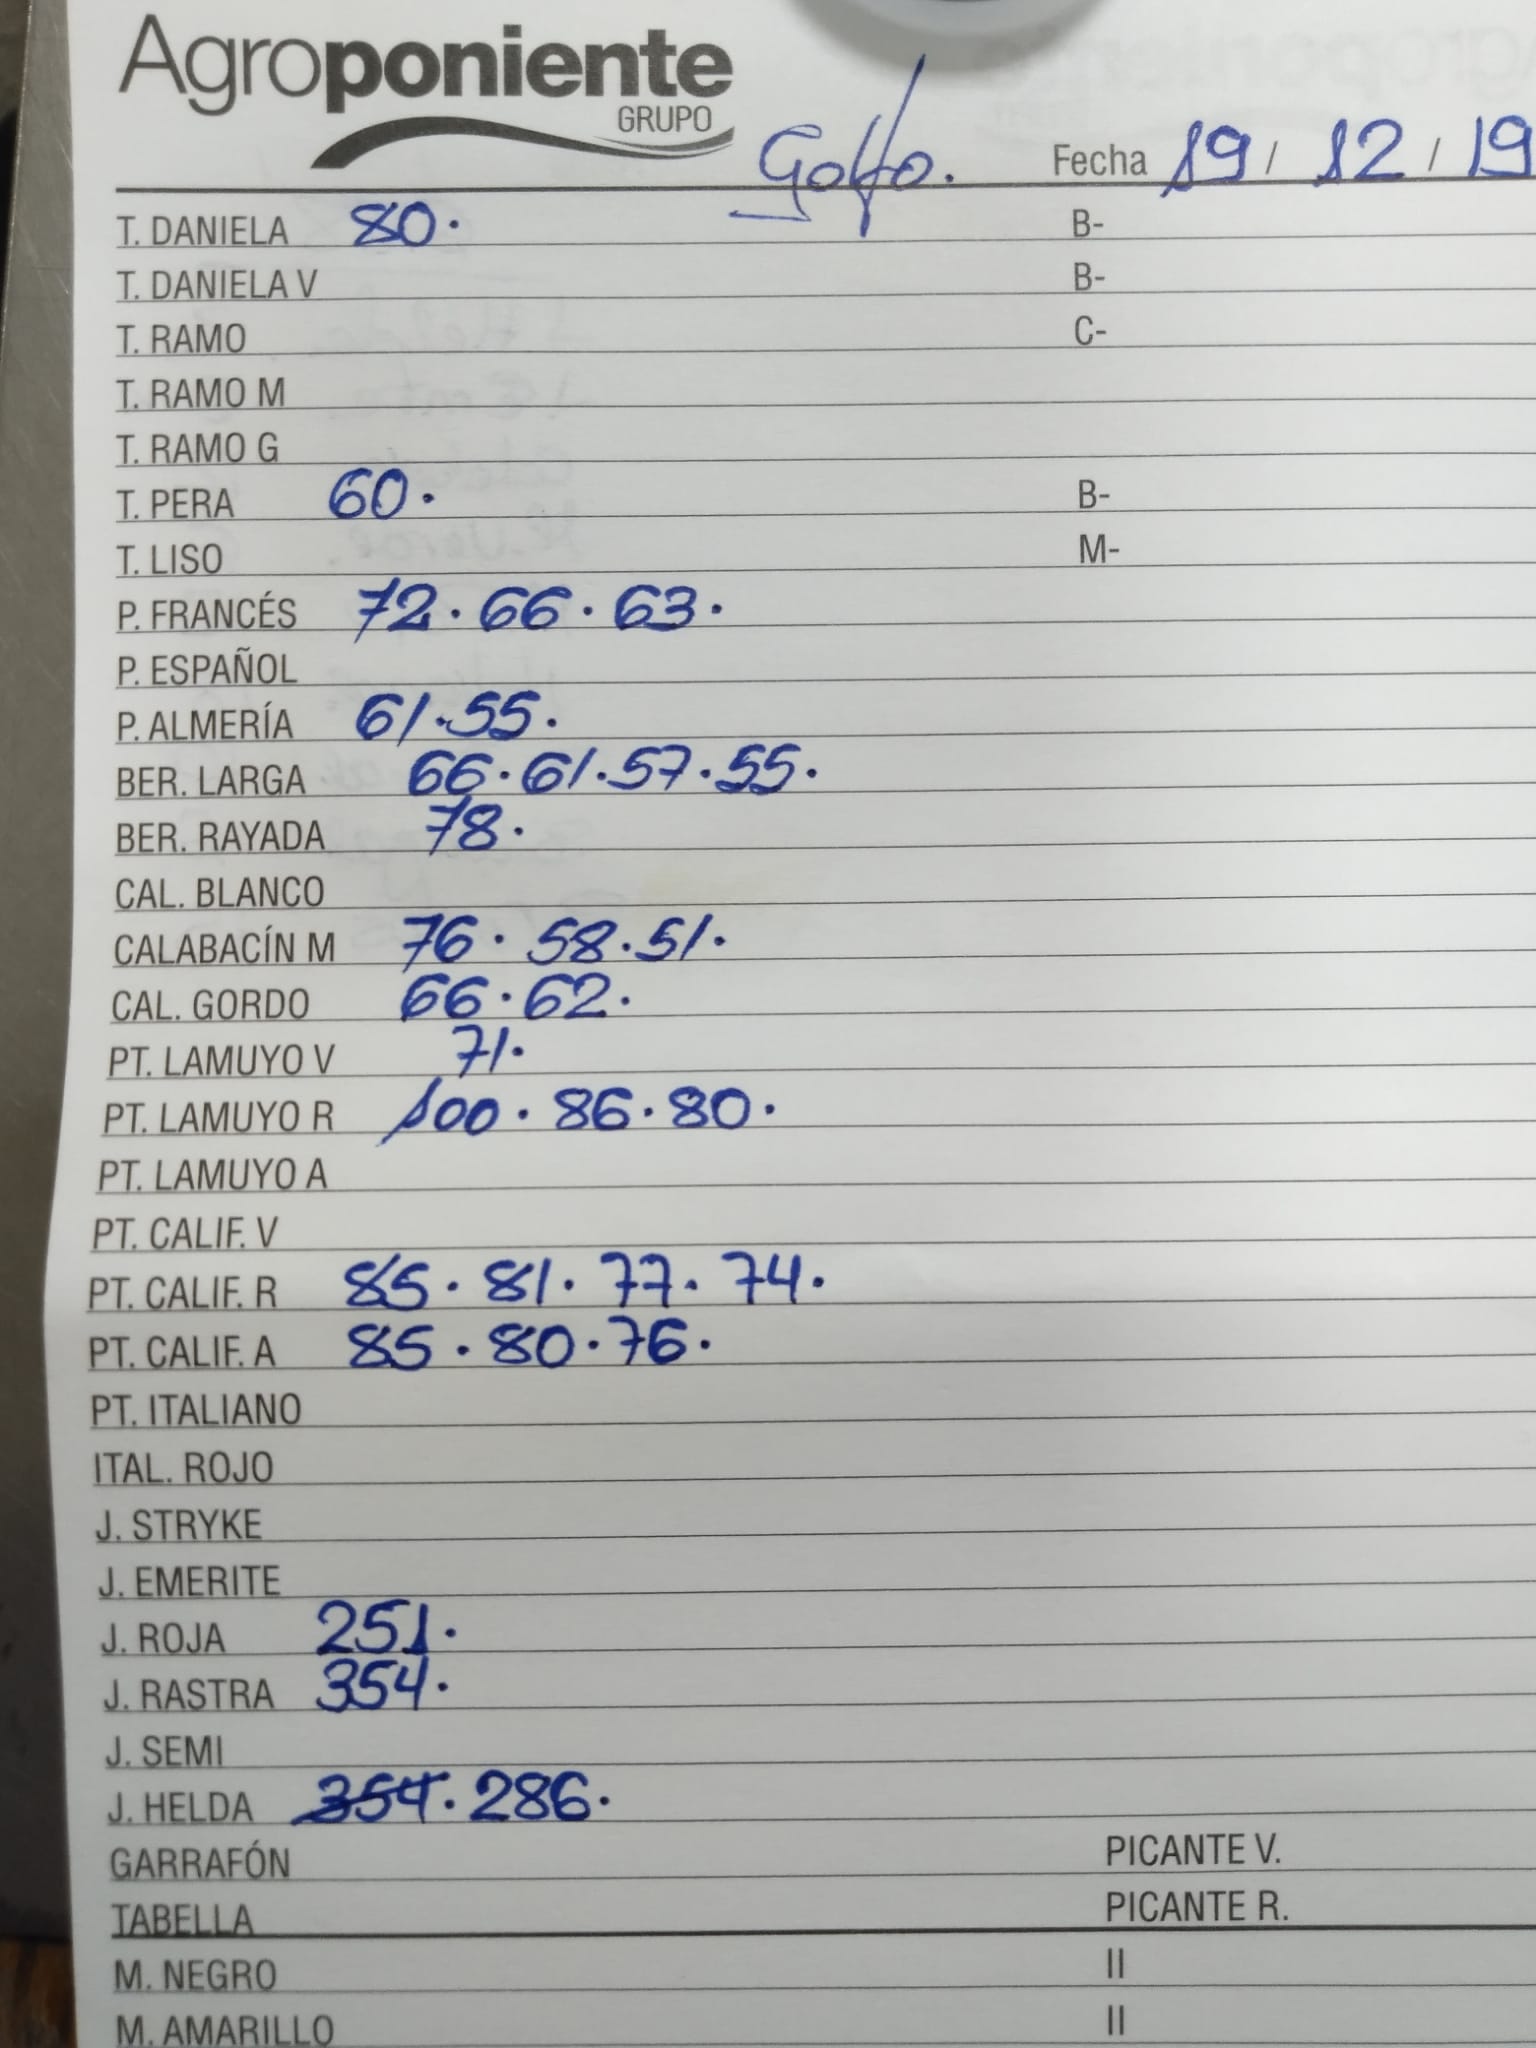 Agroponiente
GRUPO
Golfo. Fecha 19 / 12 / 19
T. DANIELA 80. B-
T. DANIELA V B-
T. RAMO C-
T. RAMO M
T. RAMO G
T. PERA 60. B-
T. LISO M-
P. FRANCÉS 72. 66. 63.
P. ESPAÑOL
P. ALMERÍA 61. 55.
BER. LARGA 66. 61. 57. 55.
BER. RAYADA 78.
CAL. BLANCO
CALABACÍN M 76. 58. 51.
CAL. GORDO 66. 62.
PT. LAMUYO V 71.
PT. LAMUYO R 100. 86. 80.
PT. LAMUYO A
PT. CALIF. V
PT. CALIF. R 85. 81. 77. 74.
PT. CALIF. A 85. 80. 76.
PT. ITALIANO
ITAL. ROJO
J. STRYKE
J. EMERITE
J. ROJA 251.
J. RASTRA 354.
J. SEMI
J. HELDA 354. 286.
GARRAFÓN PICANTE V.
TABELLA PICANTE R.
M. NEGRO II
M. AMARILLO II